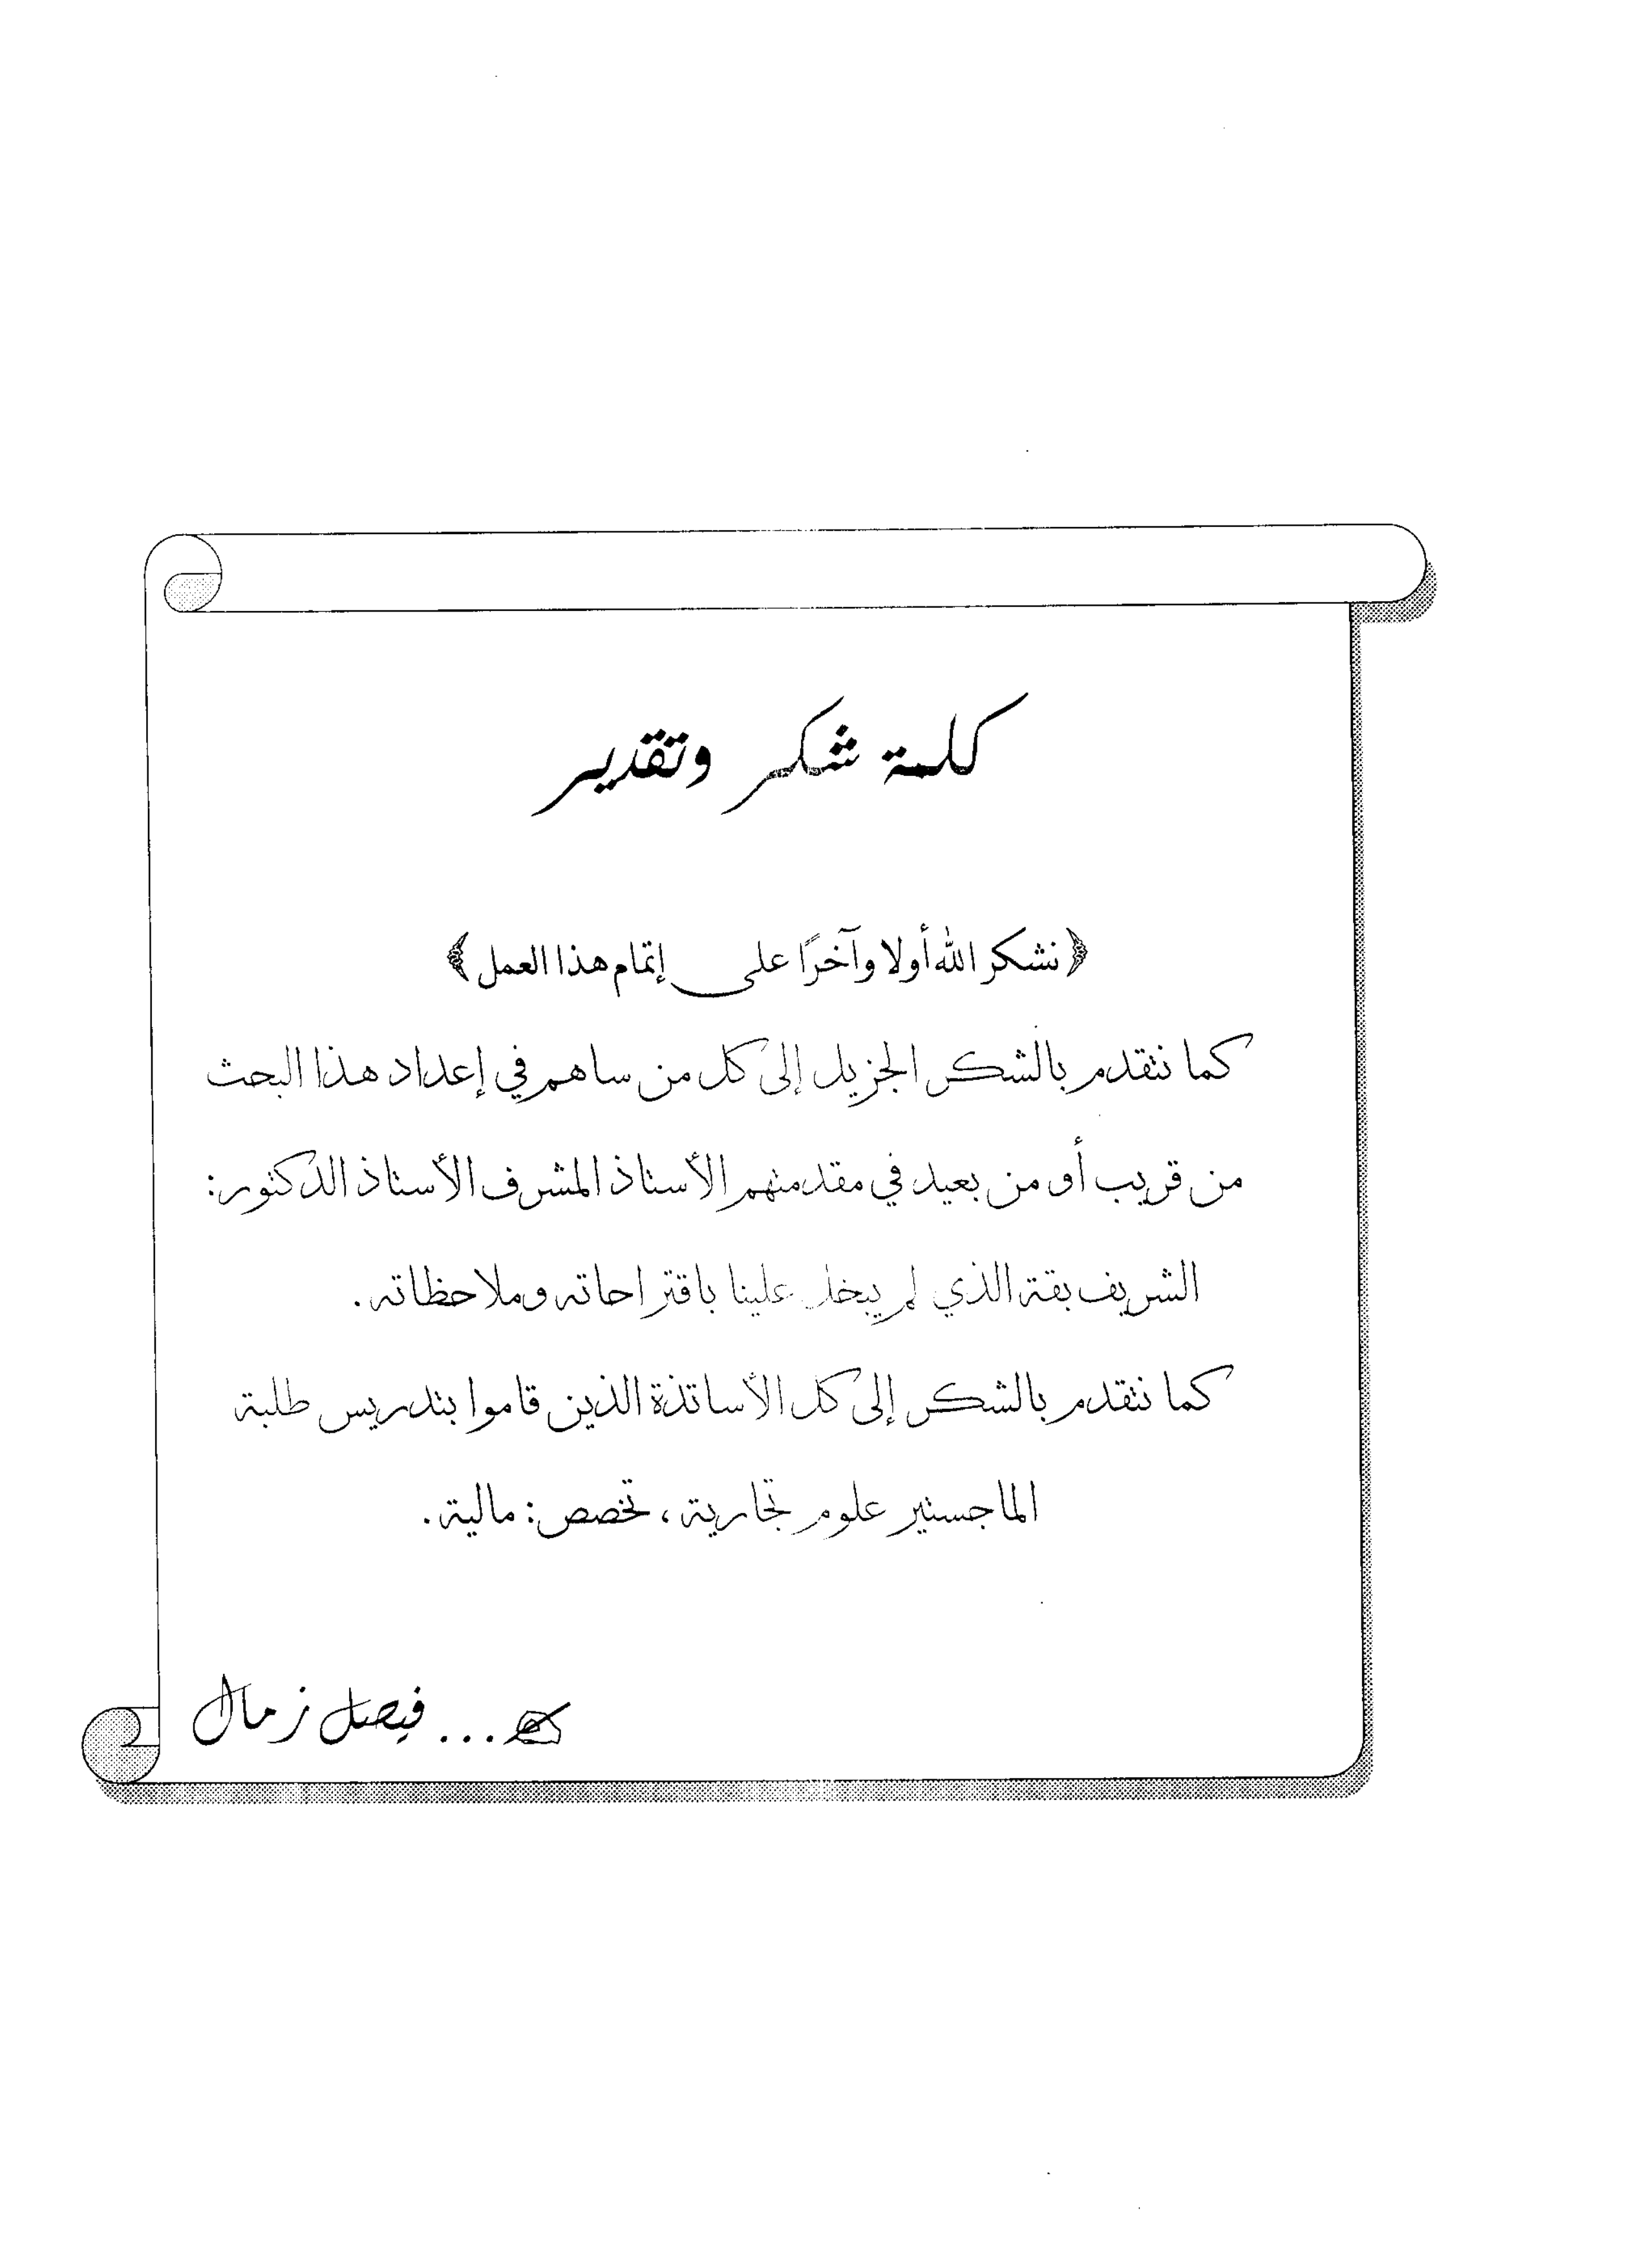 كلمة شكر وتقدير
﴿نشكر الله أولا وآخرًا على إتمام هذا العمل﴾
كما نتقدم بالشكر الجزيل إلى كل من ساهم في إعداد هذا البحث
من قريب أو من بعيد في مقدمتهم الأستاذ المشرف الأستاذ الدكتور:
الشريف بقة الذي لم يبخل علينا باقتراحاته وملاحظاته.
كما نتقدم بالشكر إلى كل الأساتذة الذين قاموا بتدريس طلبة
الماجستير علوم تجارية، تخصص: مالية.
...فيصل زمال